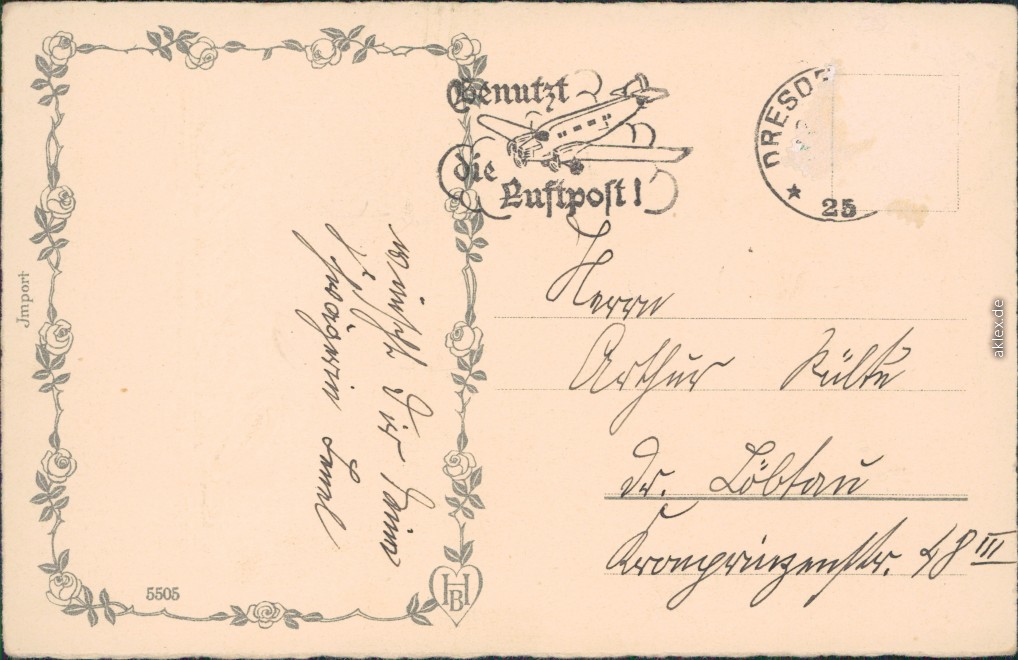 Benutzt
die
Luftpost!
DRESD
25
Jmport
wünscht Dir Deine
Schwägerin
Herrn
Arthur
Dr. Löbtau
Kronprinzenstr. 48 III
5505
HB
aklex.de